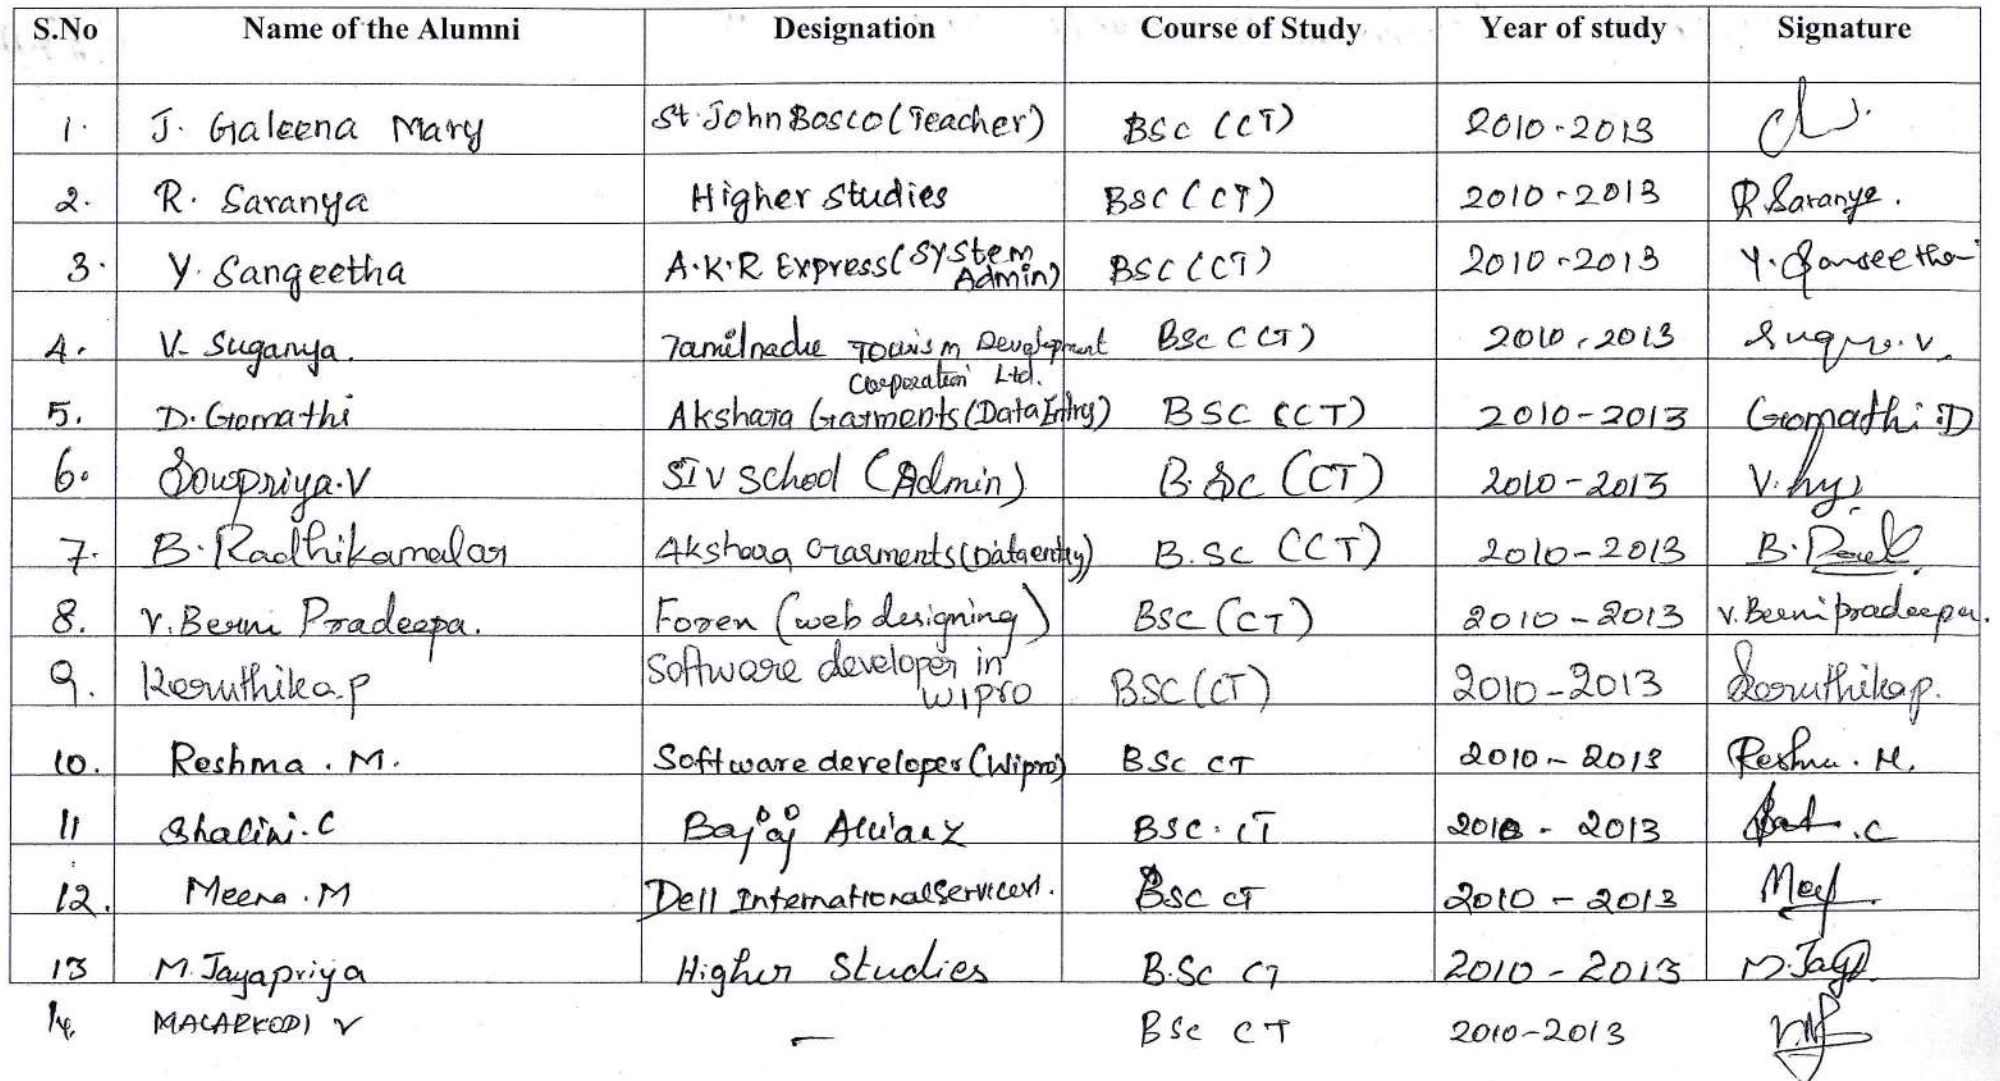 S.No Name of the Alumni Designation Course of Study Year of study Signature
1. J. Galeena Mary St. John Bosco (Teacher) BSc (CT) 2010-2013
2. R. Saranya Higher Studies BSC (CT) 2010-2013 R Saranya.
3. Y. Sangeetha A.K.R Express (System Admin) BSC (CT) 2010-2013 Y. Sangeetha
4. V. Suganya. Tamilnadu Tourism Development Corporation Ltd. BSc (CT) 2010-2013
5. D. Gomathi Akshara Garments (Data Entry) BSC (CT) 2010-2013 Gomathi.D
6. Sowpriya.V SIV School (Admin) B.Sc (CT) 2010-2013
7. B. Radhikamalar Akshara Garments (Data entry) B.Sc (CT) 2010-2013 B.
8. V. Berni Pradeepa. Foren (web designing) BSC (CT) 2010-2013 V. Berni Pradeepa.
9. Keruthika.p Software developer in WIPRO BSC (CT) 2010-2013 Keruthika p.
10. Reshma. M. Software developer (Wipro) BSc CT 2010-2013 Reshma. M.
11 Shalini. C Bajaj Allianz BSC. CT 2010 - 2013
12. Meena. M Dell International Services. BSC CT 2010 - 2013
13 M. Jayapriya Higher Studies B.Sc CT 2010 - 2013
14. MALARKODI V - BSc CT 2010-2013